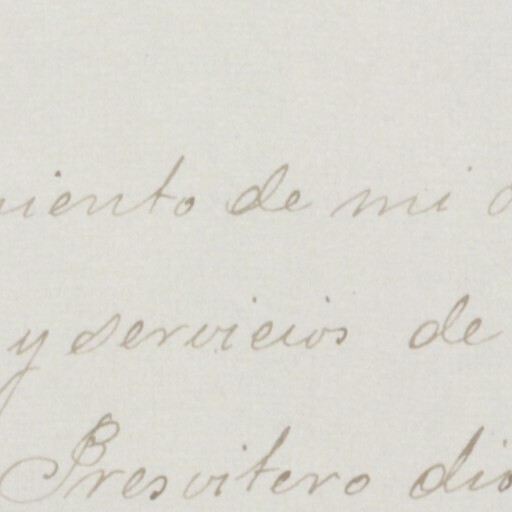 iento de mi
y servicios de
Presvitero dio